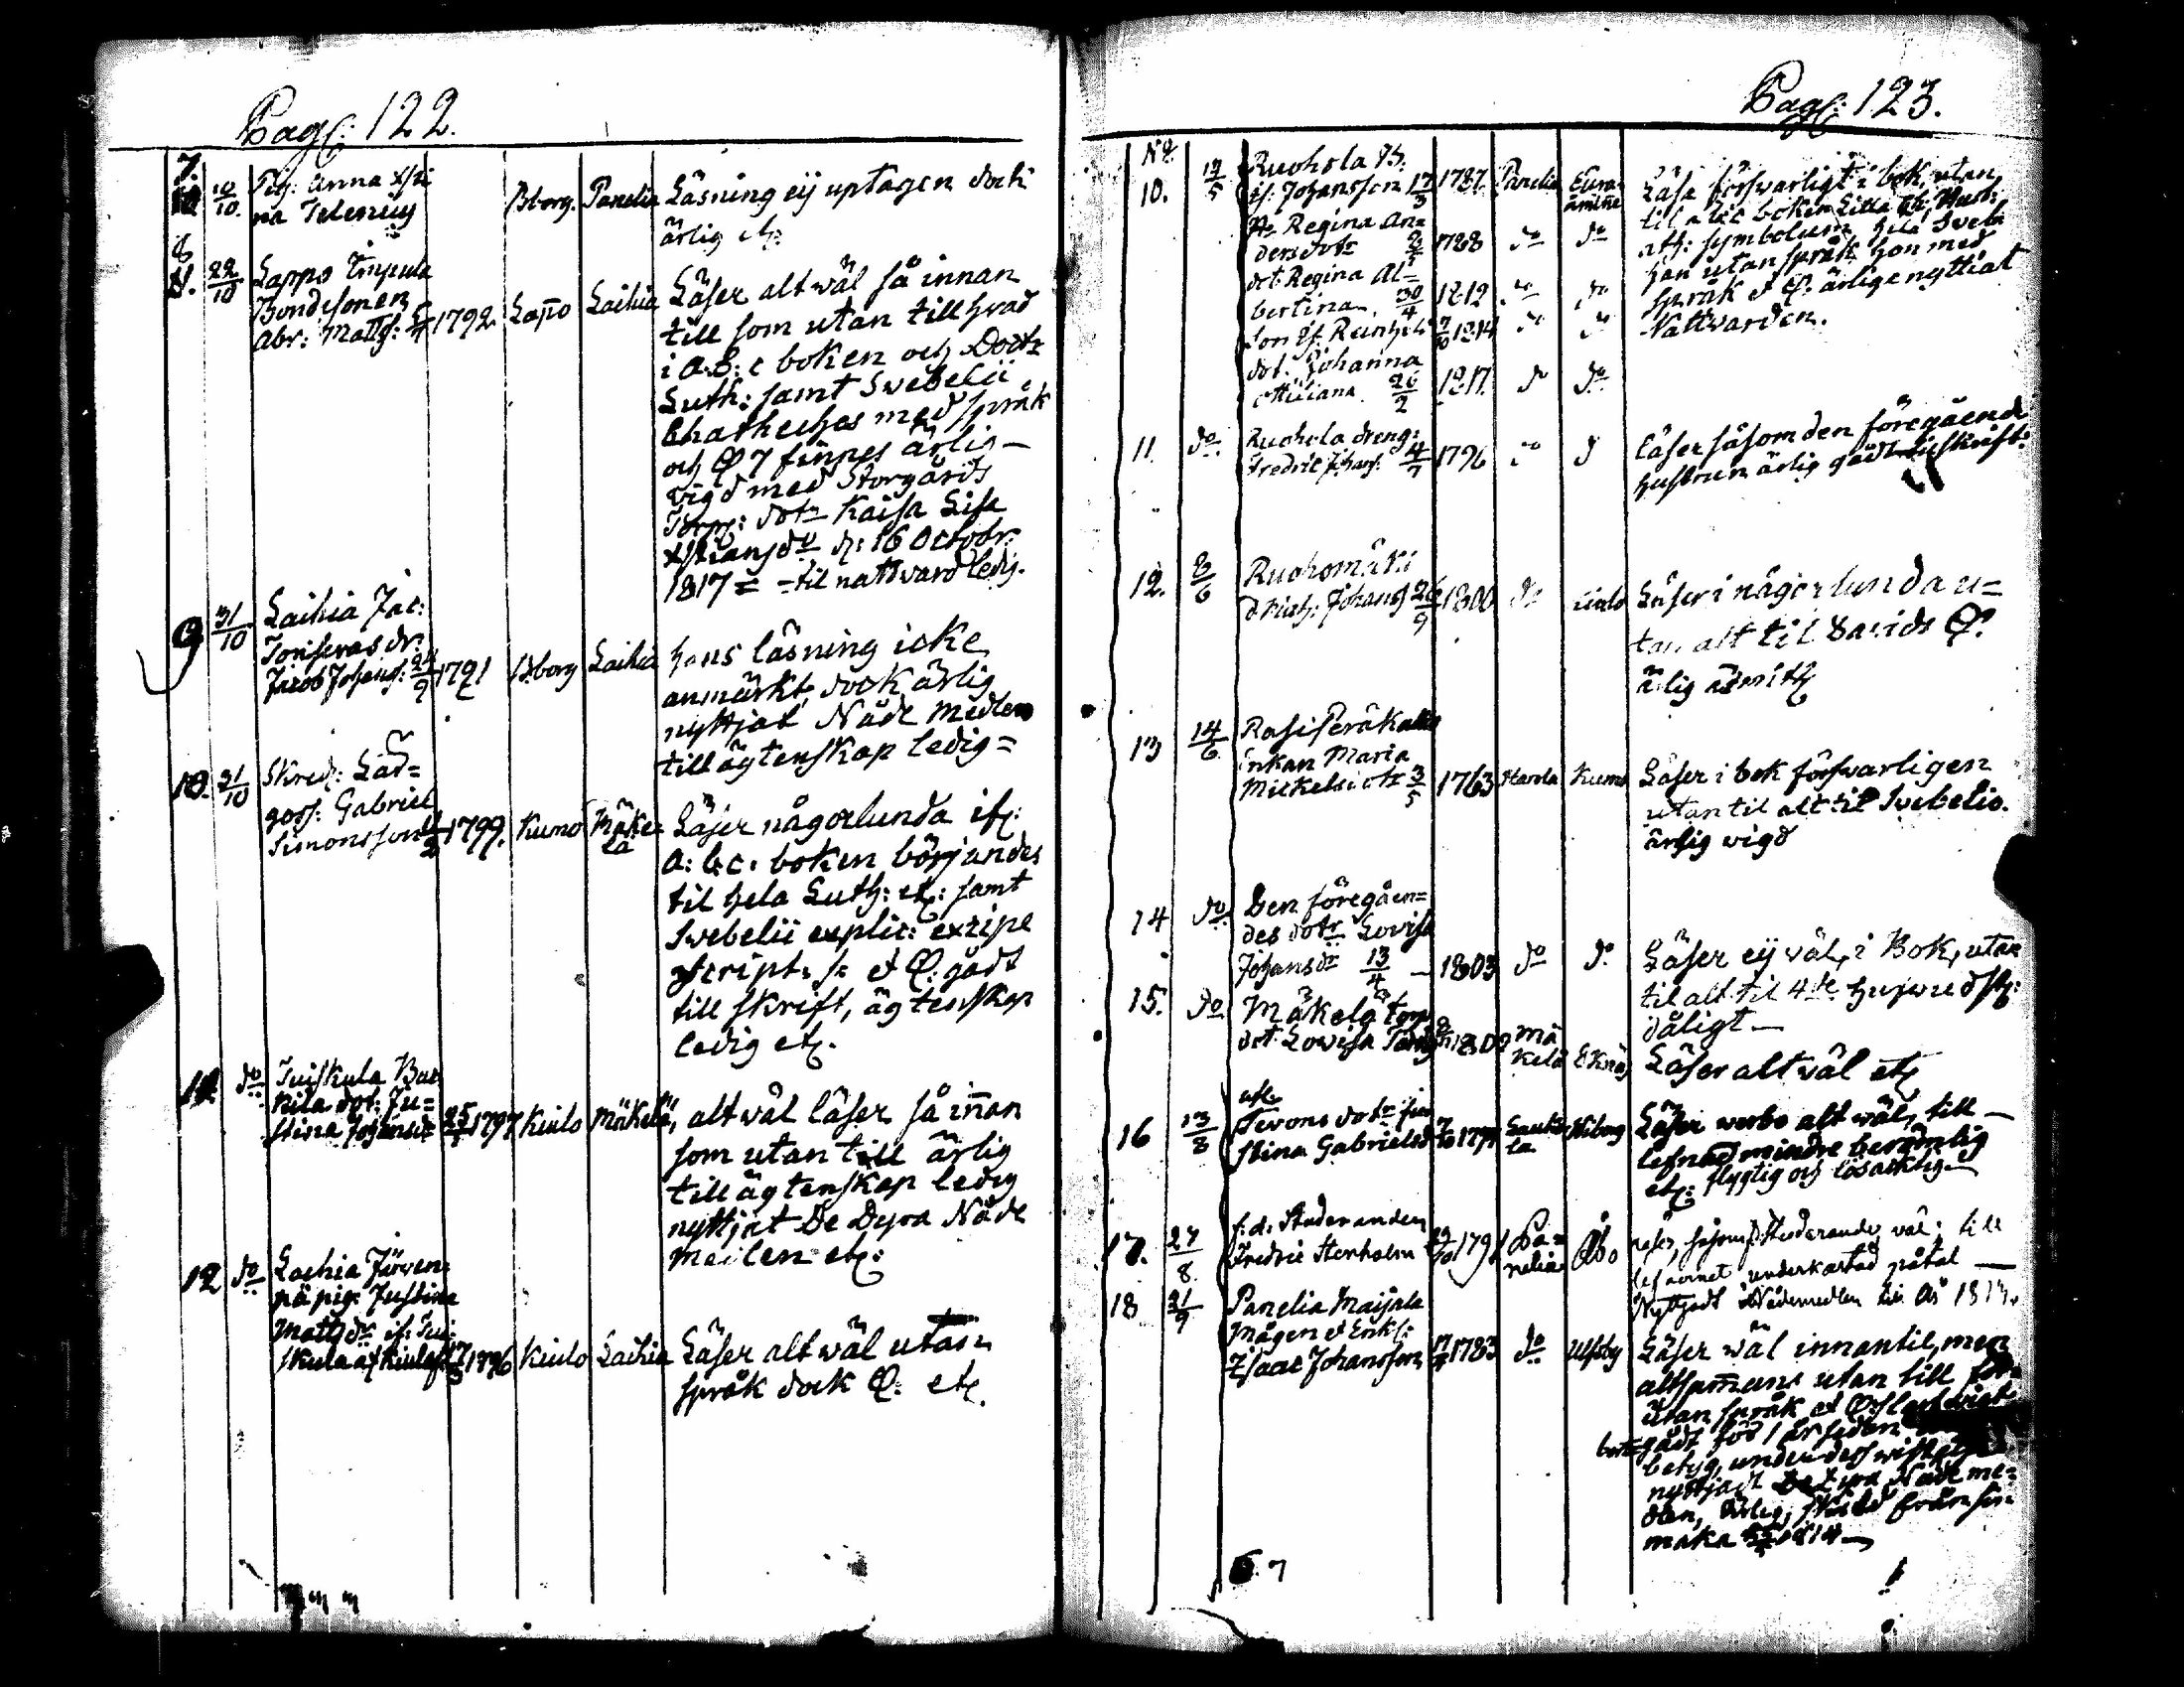 Pag: 122.
7. 10/10. Pig: Anna Xsti
na Telenius Bborg. Panelia Läsning eij uptagen dock
ärlig etz:
8. 22/10 Lappo Impula
Bondesonen
Abr: Matts: 1792 Lapo Laihia Läser alt wäl så innan
till som utan till hvad
i A.B.c boken och Doctr
Luth: samt Swebelii
Chatheches med språk
och Q 7 finnes ärlig
vigd med Storgårds
Torp: dotr Kaisa Lisa
Xstiansdr d: 16 Octobr.
1817 = til nattvard ledig.
9 31/10 Laihia Jac:
dr:
Jacob Johans: 24/9 1791 Bborg Laihia hans läsning icke
anmärkt, dock ärlig
nyttjat Nåde Medlen
till ägtenskap ledig =
10. 31/10 Skred: Läd=
goss: Gabriel
Simonsson 1799. Kumo Mäke
la Läser någorlunda if:
A: b.c. boken börjandes
til hela Luth: etz: samt
Swebelii explic: excipe
script: s: et Q: gådt
till skrift, ägtenskap
ledig etz.
11 do Tuiskula Bac
kila dot: Ju=
stina Johansdr 25 1797 Kiulo Mäkelä, alt wäl läser så innan
som utan till ärlig
till ägtenskap ledig
nyttjat De Dyra Nåde
Medlen etz:
12 do Laihia Järven
pä pig: Justina
Mattsdr if: Tui
skula af Kiulo 1796 Kiulo Laihia Läser alt wäl utan
språk dock Q: etz.
Pag: 123.
No.
10. 12/5 Ruohola Th.
Is: Johansson 17/3 1787. Panelia Eura
åminne Läsa försvarligt i bok, utan
til a b c boken Litla Ch: Hust:
ath: symbolum, hela Sveb:
han utan språk hon med
språk et Q: ärlige nyttiat
Nattvarden.
Hu Regina An=
dersdotr 1788 do do
dot: Regina Al=
bertina. 30/4 1812 do do
son If. 7/10 1814 do do
dot. Johanna
Ottiliana. 26/2 1817. do do
11. do Ruohola dreng:
Fredric Johans: 4/7 1796 do d Läser såsom den föregående
hustrun ärlig gådt skrift:
12. 8/6 Ruohomäki
Johans 26/9 1800 do Kiulo Läser i någorlunda u=
tan alt til Davids Q:
ärlig
13 14/6 Rasi
Enkan Maria
Mickelsdotr 3/5 1763 Harola Kumo Läser i bok försvarligen
utan til alt til Svebelio.
ärlig vigd
14 do Den föregåen=
des dotr Lovisa
Johansdr 13/4 1803 do do Läser eij väl, i Bok, utan
til alt til 4de hufwudst:
dåligt
15. do Mäkelä torp
dot: Lovisa Mä
kelä Eknäs Läser alt väl etz
16 13/8 Tevons dotr
Stina Gabrielsd 7/10 Sauki
la Wiborg Läser werbo alt wäl, till
lefnad mindre berömlig
etz: flygtig och lösaktig
17. 27/8. f:d: Studeranden
Fredric Stenholm 1791 Pa=
nelia Åbo såsom Studerande, väl; till
underkastad påtal
Nyttjadt Nådemedlen til År
18 21/9 Panelia Maijala
Mågen et Enkl:
Isaac Johansson 1783 do Ulfsby Läser wäl innantil, men
altsammans utan till för
utan språk et
gådt för 1 år sedan
betyg, under dess
nyttjadt De Dyra Nåde me=
dlen, ärlig, skild från sin
maka 1814
7